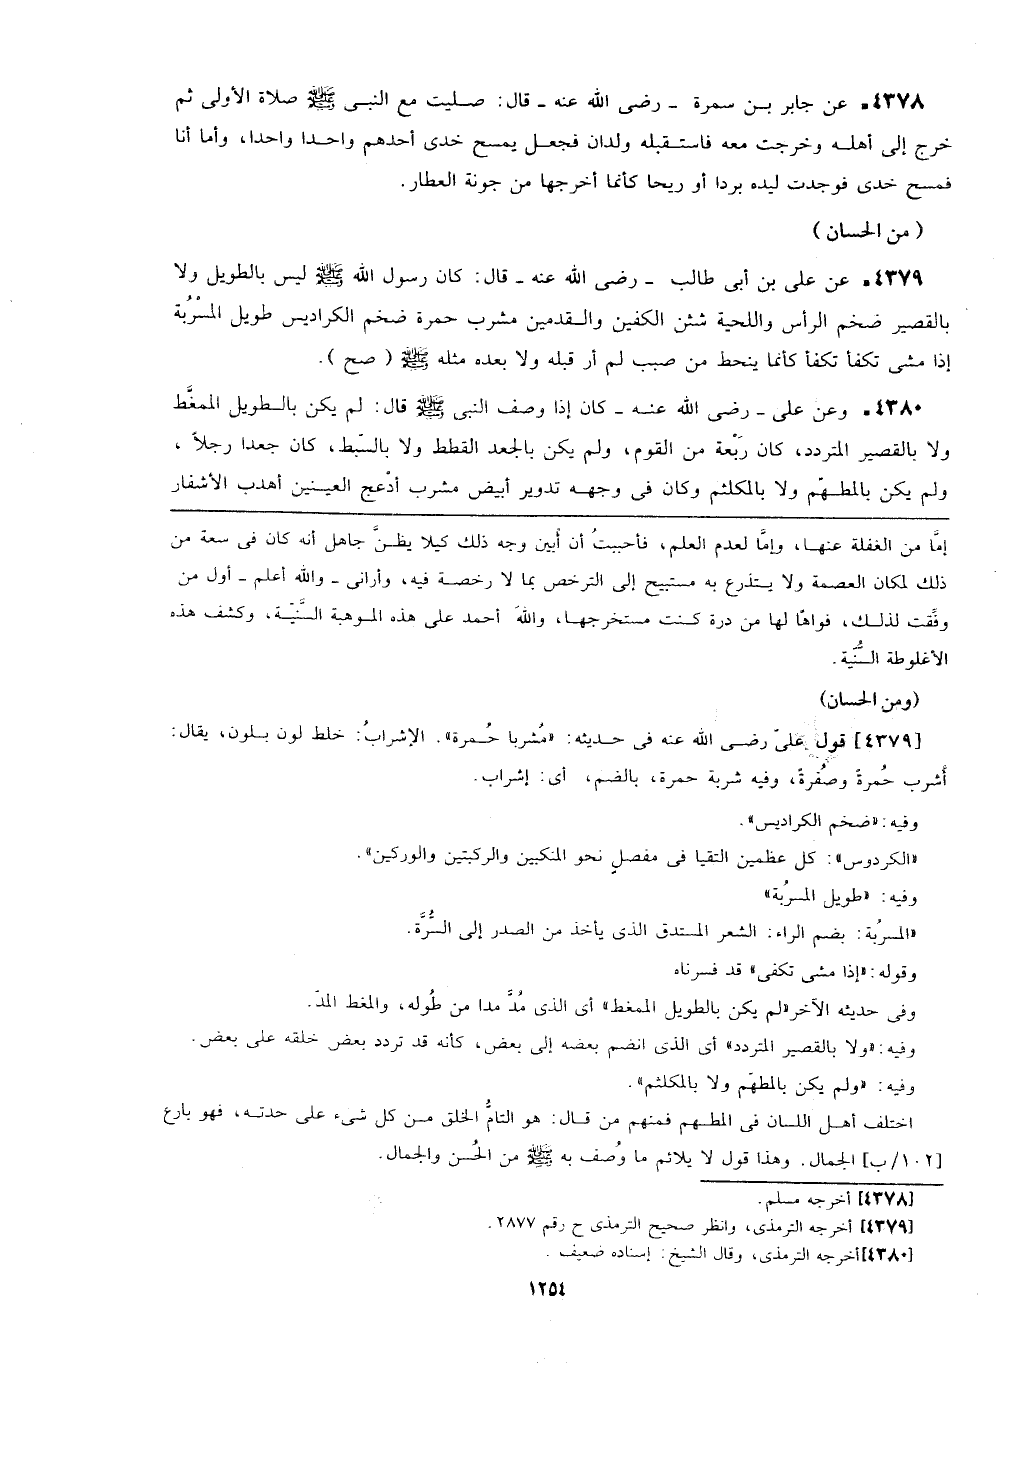 ٤٣٧٨. عن جابر بن سمرة ـ رضى الله عنه ـ قال: صليت مع النبى ﷺ صلاة الأولى ثم
خرج إلى أهله وخرجت معه فاستقبله ولدان فجعل يمسح خدى أحدهم واحدا واحدا، وأما أنا
فمسح خدى فوجدت ليده بردا أو ريحا كأنما أخرجها من جونة العطار.
( من الحسان )
٤٣٧٩. عن على بن أبى طالب ـ رضى الله عنه ـ قال: كان رسول الله ﷺ ليس بالطويل ولا
بالقصير ضخم الرأس واللحية شثن الكفين والقدمين مشرب حمرة ضخم الكراديس طويل المسْرُبة
إذا مشى تكفأ تكفأ كأنما ينحط من صبب لم أر قبله ولا بعده مثله ﷺ ( صح ).
٤٣٨٠. وعن على ـ رضى الله عنه ـ كان إذا وصف النبى ﷺ قال: لم يكن بالطويل الممغَّط
ولا بالقصير المتردد، كان رَبْعة من القوم، ولم يكن بالجعد القطط ولا بالسّبط، كان جعدا رجلاً ،
ولم يكن بالمطهّم ولا بالمكلثم وكان فى وجهه تدوير أبيض مشرب أدْعج العينين أهدب الأشفار
إمَّا من الغفلة عنها، وإمَّا لعدم العلم، فأحببتُ أن أُبين وجه ذلك كيلا يظنَّ جاهل أنه كان فى سعة من
ذلك لمكان العصمة ولا يتذرع به مستبيح إلى الترخص بما لا رخصة فيه، وأرانى ـ والله أعلم ـ أول من
وفِّقت لذلك، فواهًا لها من درة كنت مستخرجها، واللهَ أحمد على هذه الموهبة السَّنيّة، وكشف هذه
الأغلوطة السُّنّية.
(ومن الحسان)
[٤٣٧٩] قول علىّ رضى الله عنه فى حديثه: «مُشربا حُمرة». الإشرابُ: خلط لون بلون، يقال:
أُشرب حُمرةً وصُفرةً، وفيه شربة حمرة، بالضم، أى: إشراب.
وفيه: «ضخم الكراديس».
«الكردوس»: كل عظمين التقيا فى مفصلٍ نحو المنكبين والركبتين والوركين».
وفيه: «طويل المسرُبة»
«المسرُبة: بضم الراء: الشعر المستدق الذى يأخذ من الصدر إلى السُّرَّة.
وقوله: «إذا مشى تكفى» قد فسرناه
وفى حديثه الآخر«لم يكن بالطويل الممغط» أى الذى مُدَّ مدا من طُوله، والمغط المدّ.
وفيه: «ولا بالقصير المتردد» أى الذى انضم بعضه إلى بعض، كأنه قد تردد بعض خلقه على بعض.
وفيه: «ولم يكن بالمطهّم ولا بالمكلثم».
اختلف أهل اللسان فى المطهم فمنهم من قال: هو التامُّ الخلق من كل شىء على حدته، فهو بارع
[١٠٢/ب] الجمال. وهذا قول لا يلائم ما وُصف به ﷺ من الحُسن والجمال.
[٤٣٧٨] أخرجه مسلم.
[٤٣٧٩] أخرجه الترمذى، وانظر صحيح الترمذى ح رقم ٢٨٧٧.
[٤٣٨٠]أخرجه الترمذى، وقال الشيخ: إسناده ضعيف .
١٢٥٤